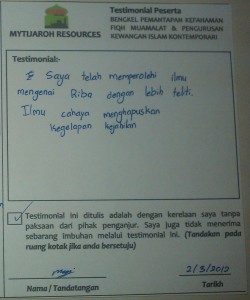 Testimonial Peserta
BENGKEL PEMANTAPAN KEFAHAMAN
FIQH MUAMALAT & PENGURUSAN
KEWANGAN ISLAM KONTEMPORARI
MYTIJAROH RESOURCES
Testimonial:-
Saya telah memperolehi ilmu
mengenai Riba dengan lebih teliti.
Ilmu cahaya menghapuskan
kegelapan kejahilan
Testimonial ini ditulis adalah dengan kerelaan saya tanpa
paksaan dari pihak penganjur. Saya juga tidak menerima
sebarang imbuhan melalui testimonial ini. (Tandakan pada
ruang kotak jika anda bersetuju)
2/3/2012
Nama / Tandatangan
Tarikh